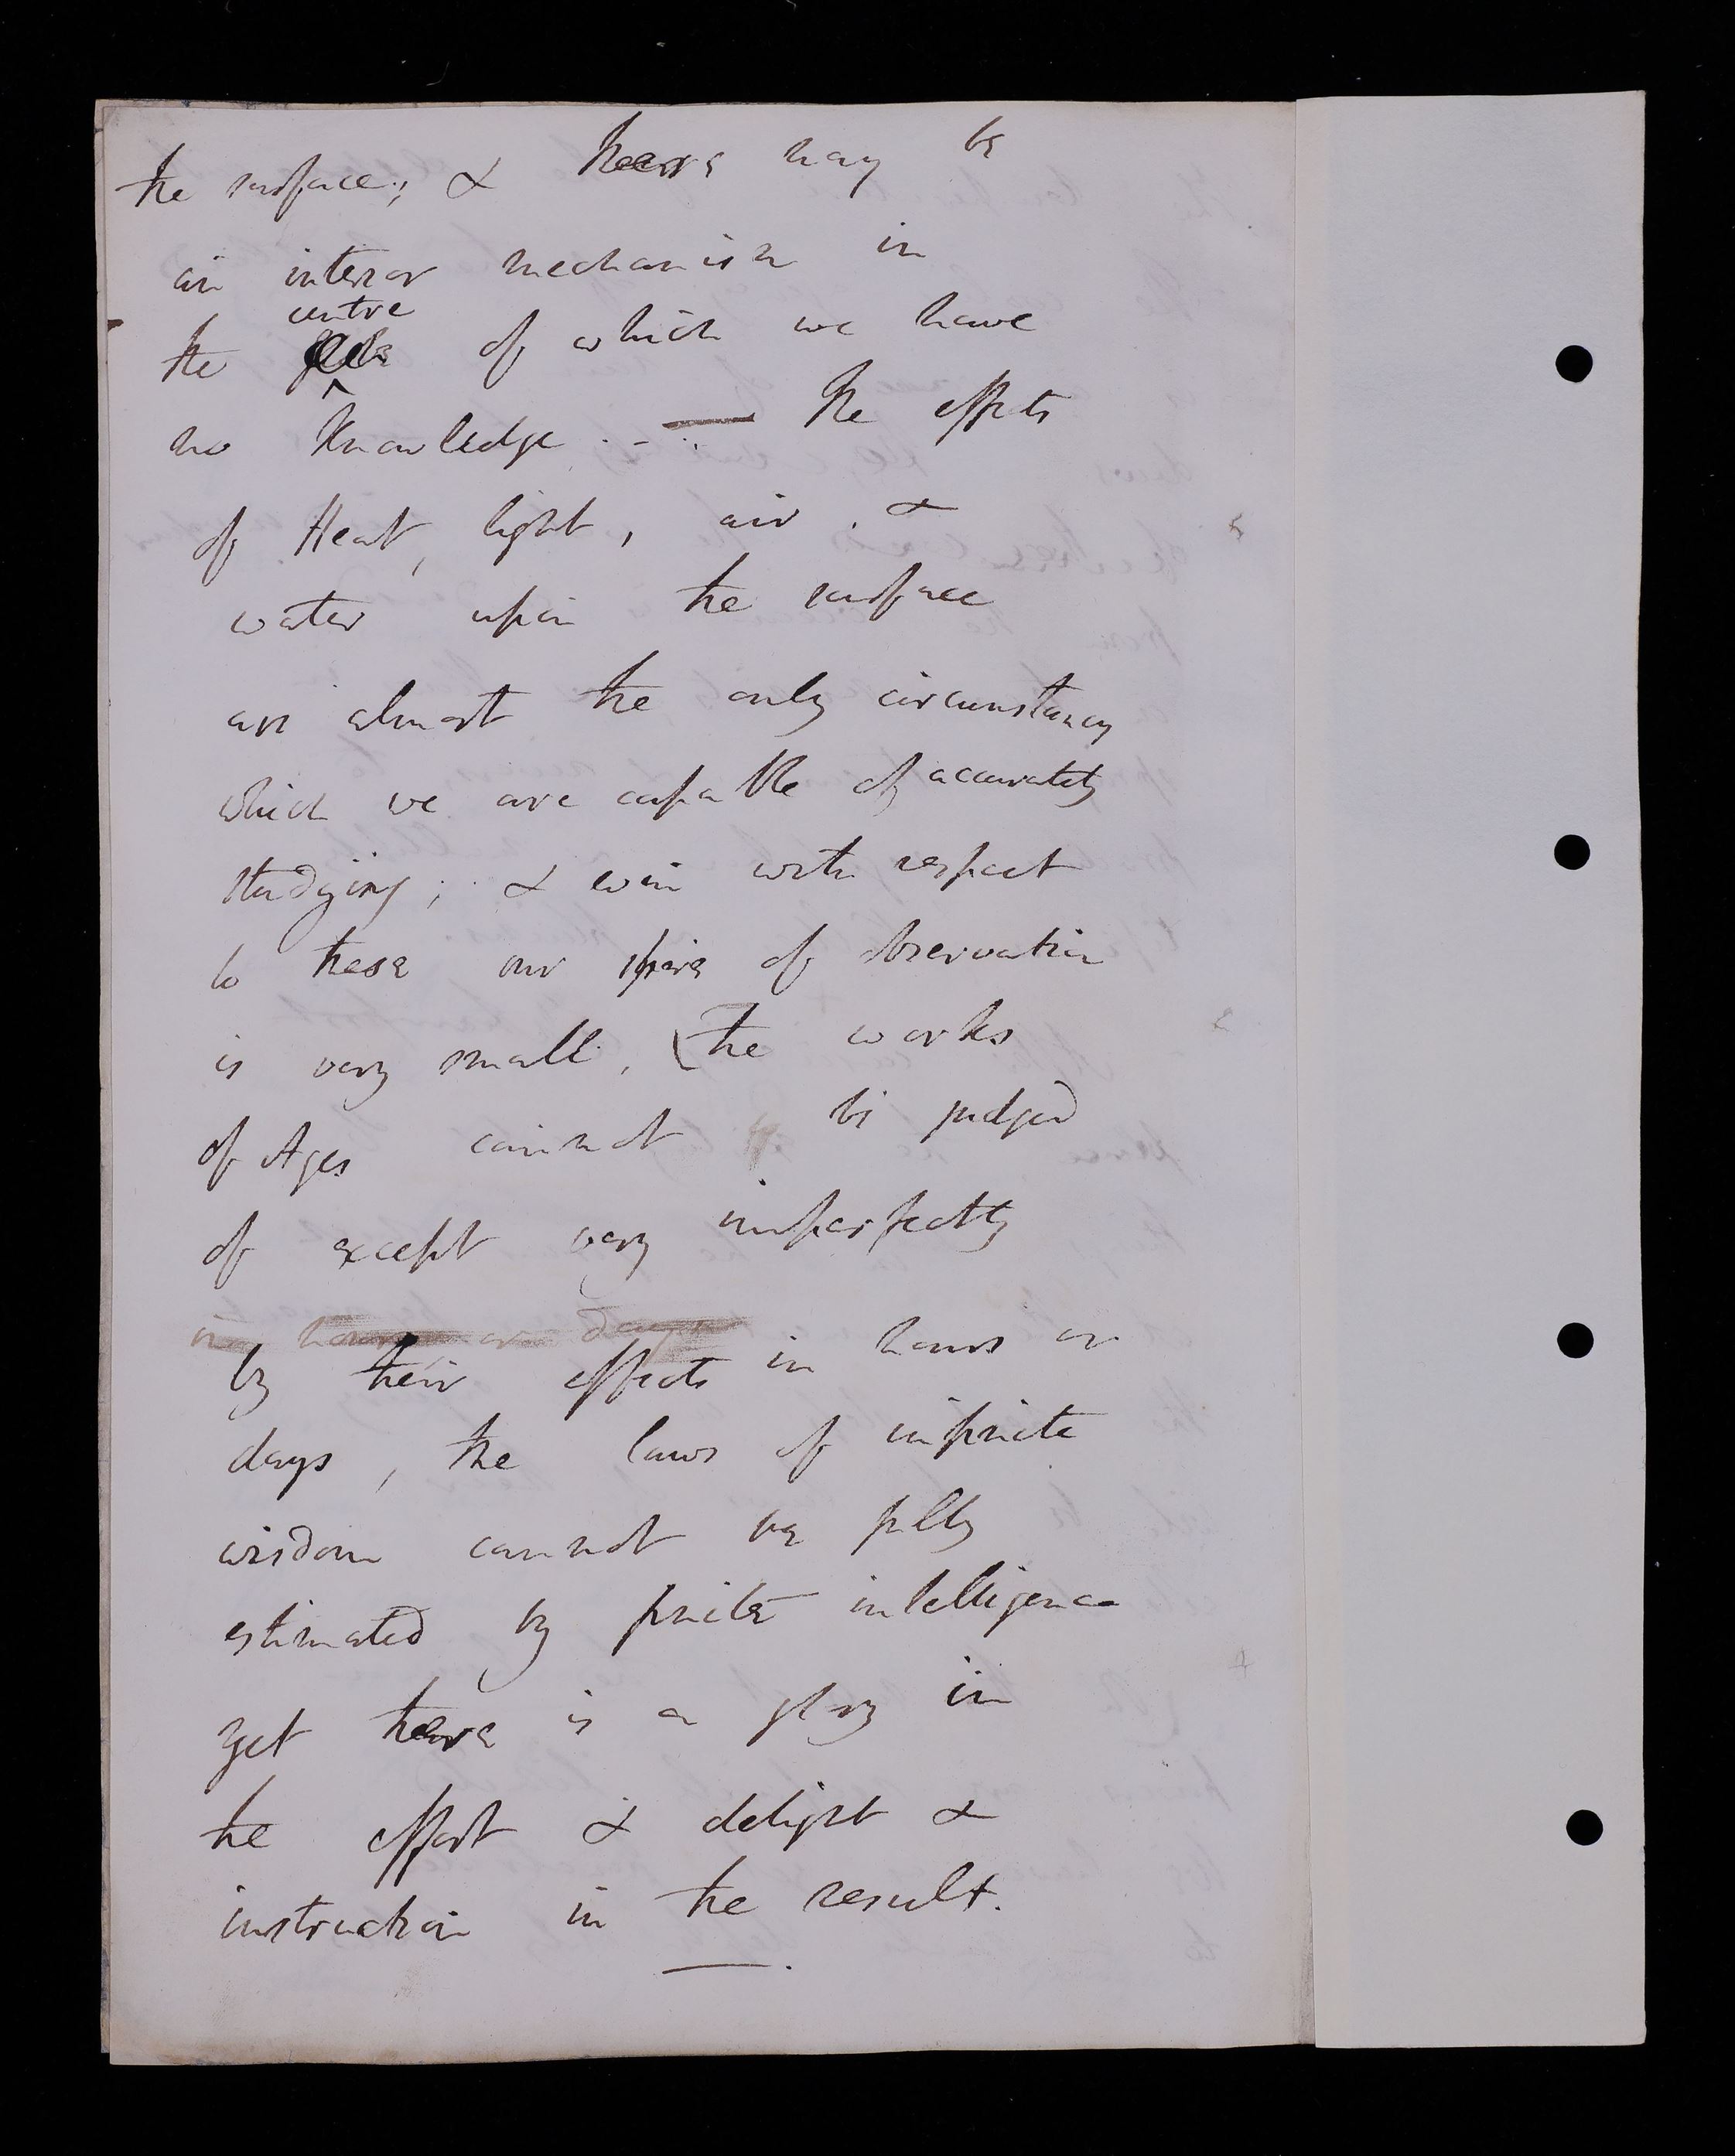 the surface; & there may be
an interior mechanism in
centre
the of which we have
no knowledge. — The effects
of Heat, light, air, &
water upon the surface
are almost the only circumstances
which we are capable of accurately
studying; & even with respect
to these our sphere of observation
is very small. (The works
of Ages cannot be judged
of except very imperfectly
in hours or days
by their effects in hours or
days, the laws of infinite
wisdom cannot be fully
estimated by finite intelligence
yet there is a glory in
the effort & delight &
instruction in the result.